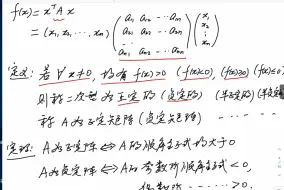 f(x) = xᵀA x
= (x₁, x₂, ... xₙ) ( a₁₁ a₁₂ ... a₁ₙ ; a₂₁ a₂₂ ... a₂ₙ ; ... ; aₙ₁ aₙ₂ ... aₙₙ ) ( x₁ ; x₂ ; ⋮ ; xₙ )
定义: 若 ∀ x≠0, 均有 f(x)>0 (f(x)<0) (f(x)≥0) (f(x)≤0)
则称二次型为正定的 (负定的) (半正定) (半负定
称 A为正定矩阵 (负定矩阵)
定理: A为正定阵 ⇔ A的顺序主子式均大于0
A为负定阵 ⇔ A的奇数阶顺序主子式<0,
偶数阶 ...... >0.